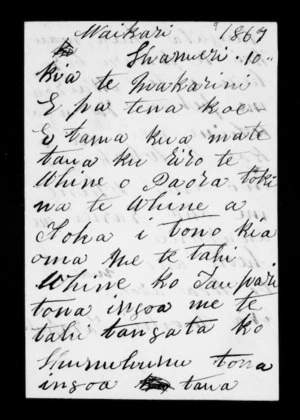 Waikari 1869
Hanueri 10
kia te Makarini
E pa tena koe
E tama kua mate
taua ku riro te
Whine o Paora toki
na te Whine a
Hoha i tono kia
oma me te tahi
Whine ko Taupari
tona ingoa me te
tahi tangata ko
tona
ingoa taua